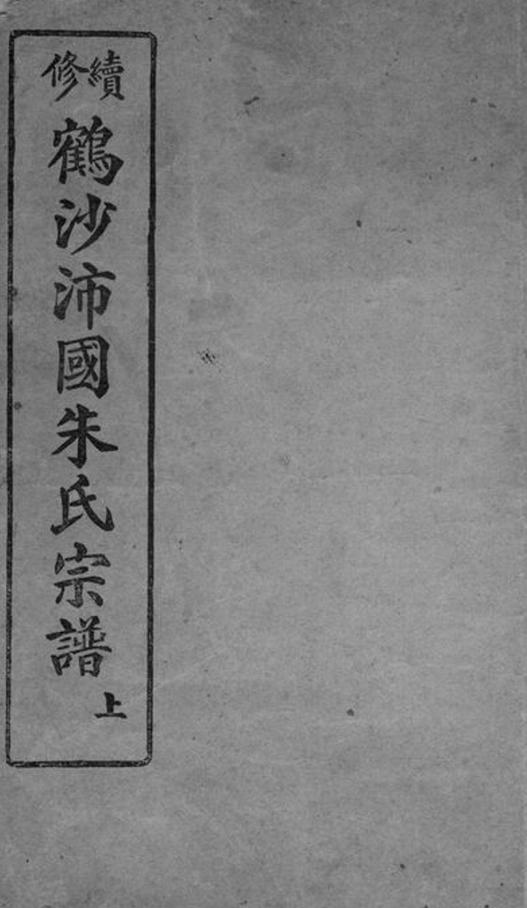 續修
鶴沙沛國朱氏宗譜
上